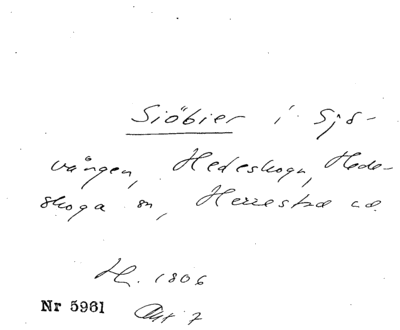 Siöbier i Sjö-
vången, Hedeskoga, Hede-
skoga sn, Herrestad
H. 1806
Nr 5961 Akt 7